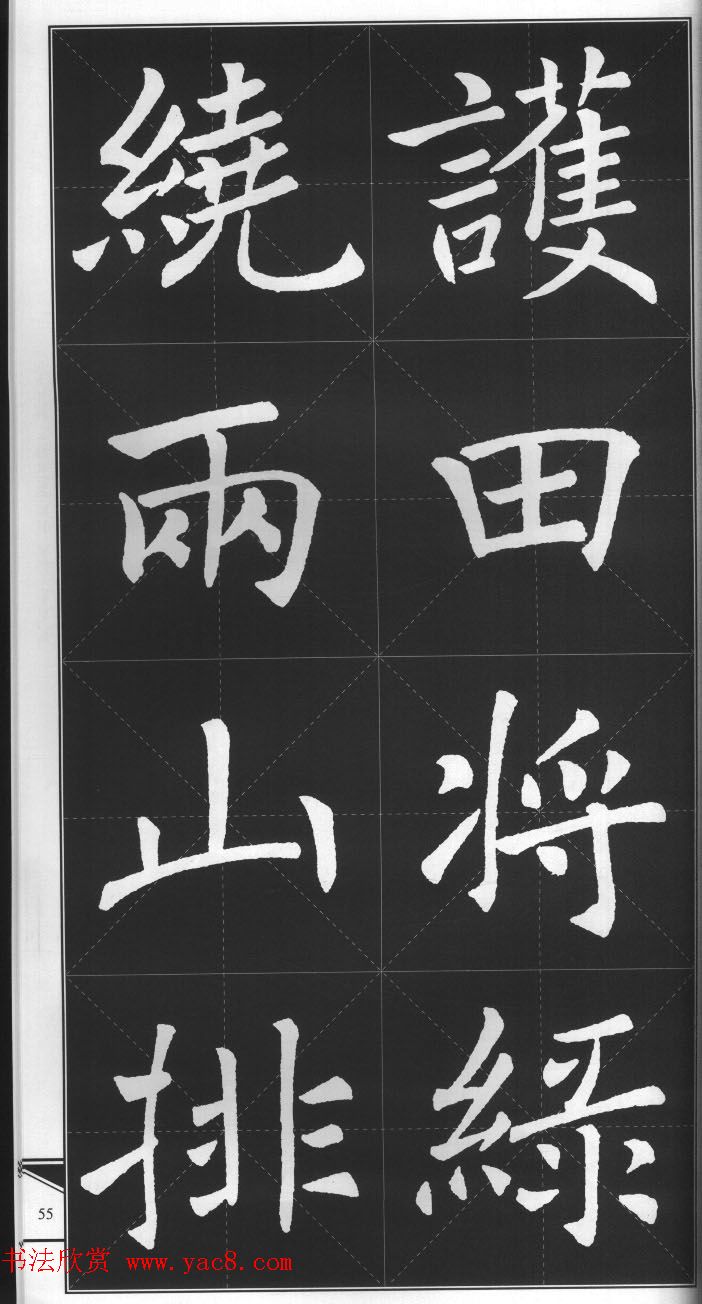 護田將綠
繞兩山排
55
书法欣赏 www.yac8.com